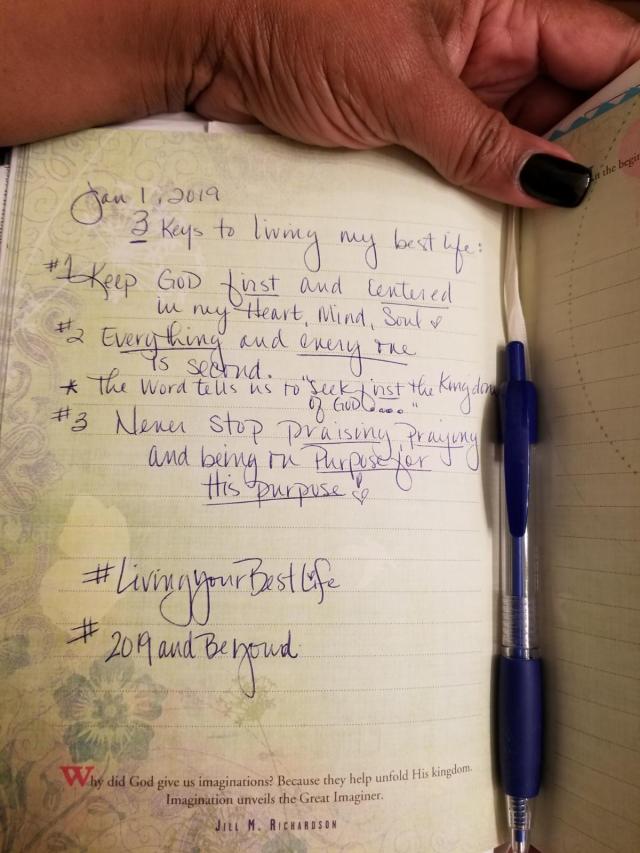 Jan 1, 2019
3 Keys to living my best life:
#1 Keep GOD first and centered
in my Heart, Mind, Soul
#2 Everything and every one
is second.
* The Word tells us to "Seek first the Kingdom
of GOD....."
#3 Never stop praising, praying
and being on Purpose for
His purpose!
#LivingyourBestLife
#2019andBeyond
Why did God give us imaginations? Because they help unfold His kingdom.
Imagination unveils the Great Imaginer.
JILL M. RICHARDSON
n the begin